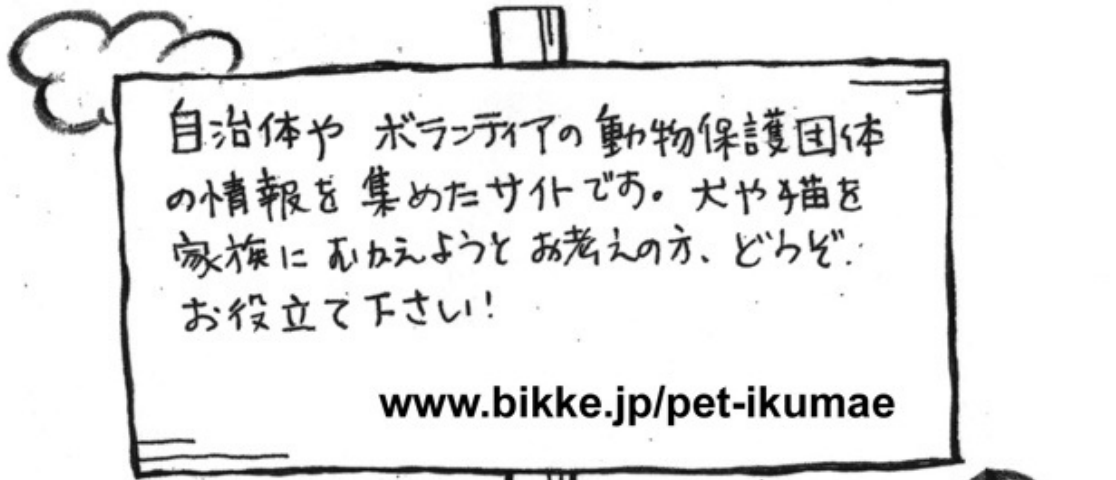 自治体や ボランティアの 動物保護団体
の情報を 集めたサイトです。犬や猫を
家族に むかえようと お考えの方、どうぞ
お役立て下さい!
www.bikke.jp/pet-ikumae